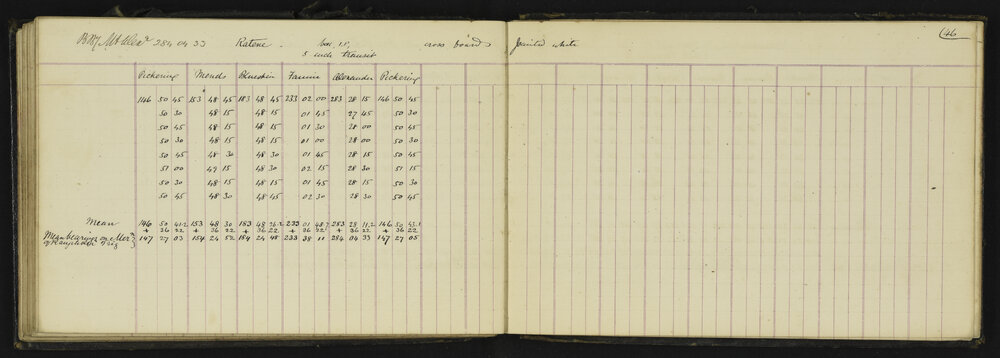 Mt Alexr 284 04 33 Ratene. cross boards Painted white 46
5 inch transit
Pickering Mends Blueskin Fannin Alexander Pickering
146 50 45 153 48 45 183 48 45 233 02 00 283 28 15 146 50 45
50 30 48 15 48 15 01 45 27 45 50 30
50 45 48 15 48 15 01 30 28 00 50 45
50 30 48 15 48 15 01 00 28 00 50 30
50 45 48 30 48 30 01 45 28 15 50 45
51 00 49 15 48 30 02 15 28 30 51 15
50 30 48 15 48 15 01 45 28 15 50 30
50 45 48 30 48 45 02 30 28 30 50 45
Mean 146 50 41.2 153 48 30 183 48 26.2 233 01 48.7 283 28 11.2 146 50 43.1
+ 36 22 + 36 22 + 36 22 + 36 22 + 36 22 + 36 22
Mean bearings on Mern 147 27 03 154 24 52 184 24 48 233 38 11 284 04 33 147 27 05
of Trig